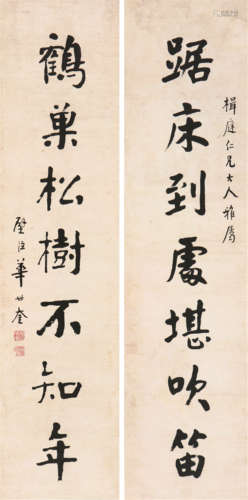 踞床到處堪吹笛
楫庭仁兄大人雅屬
鶴巢松樹不知年
華世奎